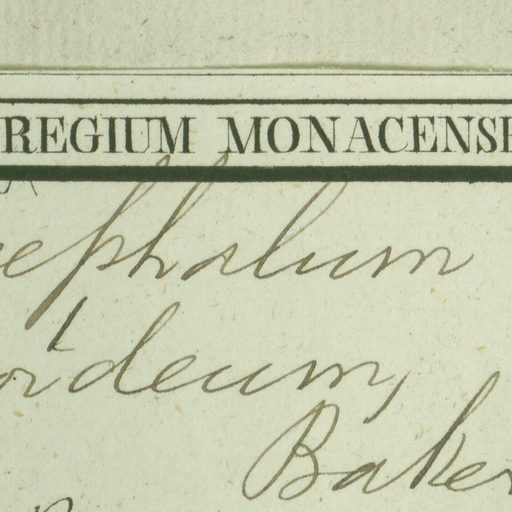 REGIUM MONACENSE
cephalum
oideum,
Baker